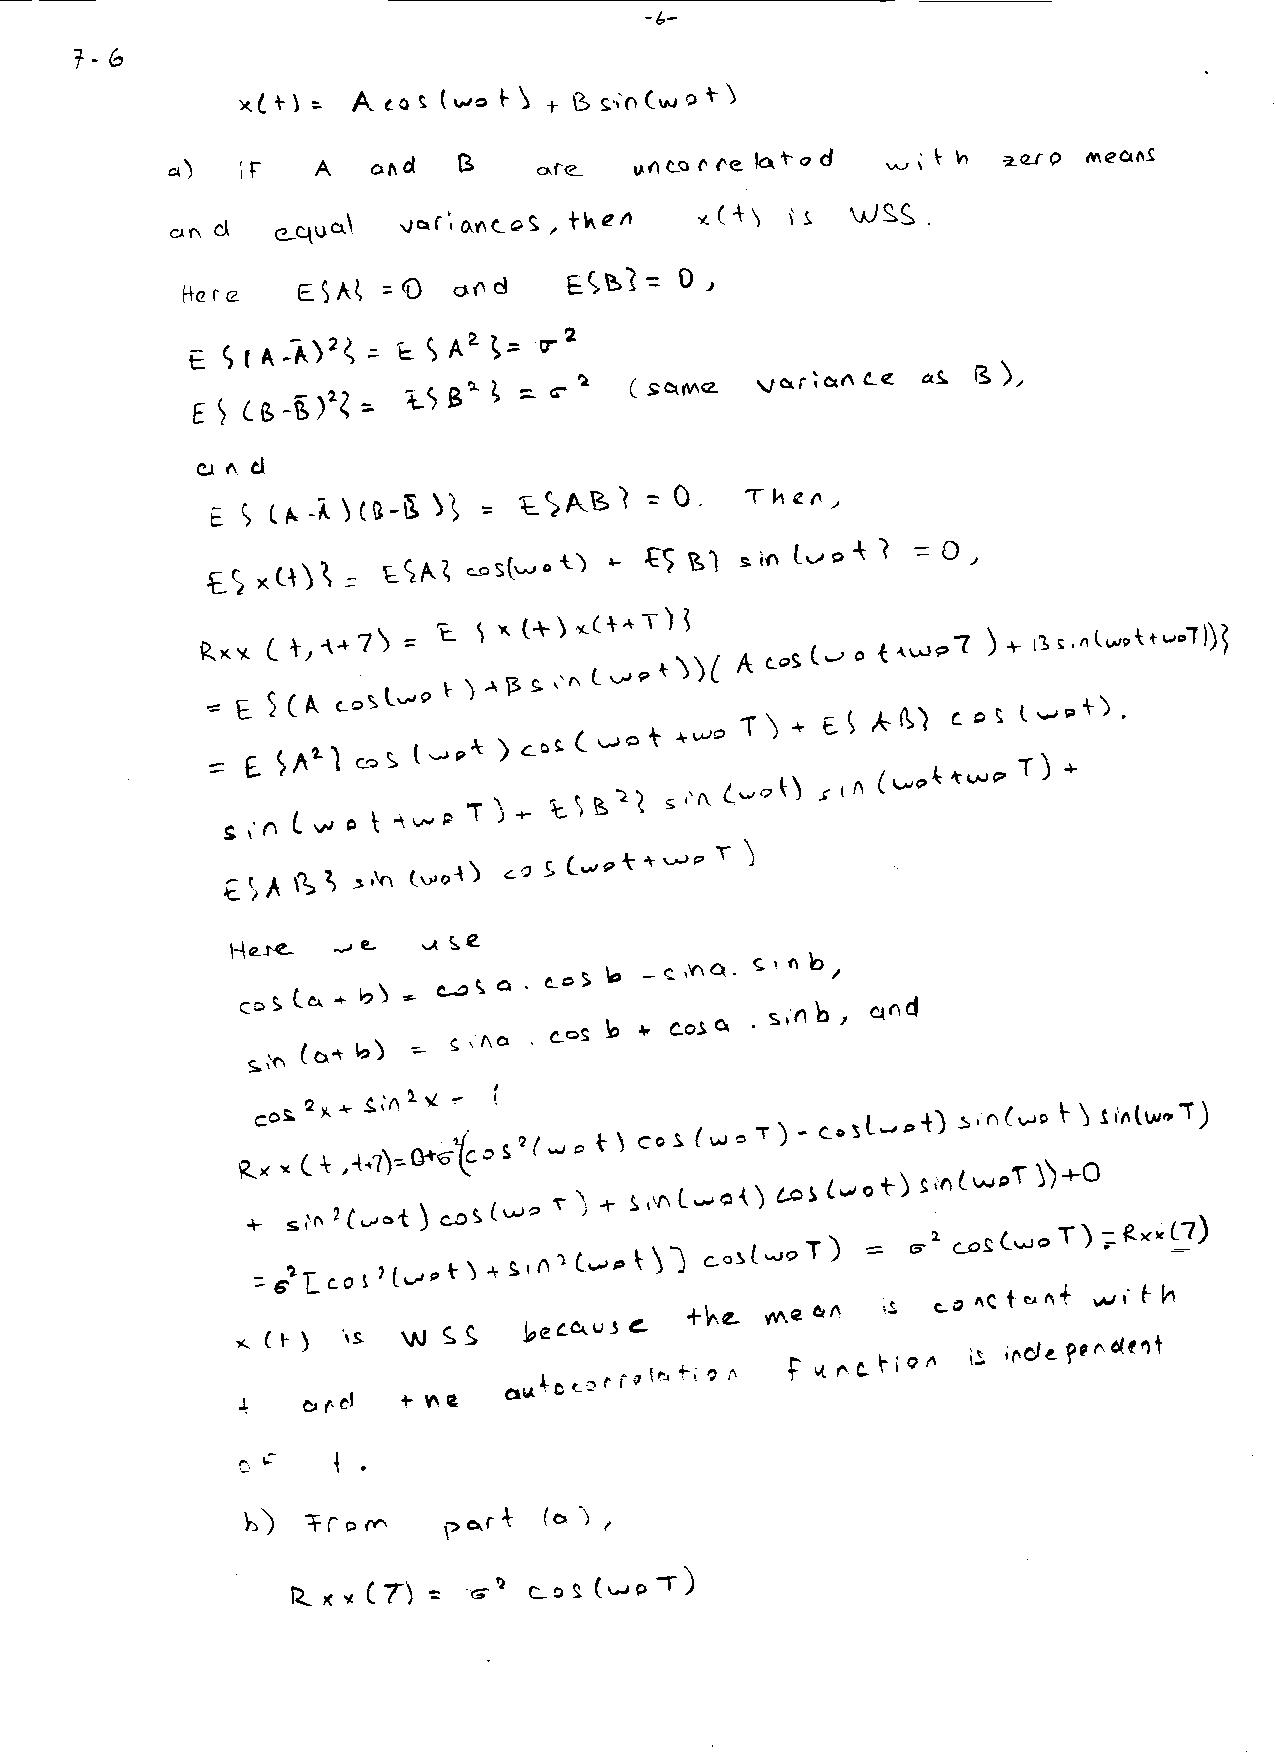 -6-
7-6
x(t) = A cos(wot) + B sin(wot)
a) if A and B are uncorrelated with zero means
and equal variances, then x(t) is WSS.
Here E{A} = 0 and E{B} = 0,
E {(A-Ā)²} = E {A²} = σ²
E {(B-B̄)²} = E{B²} = σ² (same variance as B),
and
E {(A-Ā)(B-B̄)} = E{AB} = 0. Then,
E{x(t)} = E{A} cos(wot) + E{B} sin(wot} = 0,
Rxx (t, t+T) = E {x(t)x(t+T)}
= E {(A cos(wot)+B sin(wot))( A cos(wot+woT) + B sin(wot+woT))}
= E {A²} cos(wot) cos(wot+woT) + E{AB} cos(wot).
sin(wot+woT) + E{B²} sin(wot) sin(wot+woT) +
E{AB} sin(wot) cos(wot+woT)
Here we use
cos(a+b) = cosa . cos b - sina. sinb,
sin (a+b) = sina . cos b + cosa . sinb, and
cos²x + sin²x = 1
Rxx(t,t+T)=0+σ²(cos²(wot) cos(woT) - cos(wot) sin(wot) sin(woT)
+ sin²(wot) cos(woT) + sin(wot) cos(wot) sin(woT))+0
=σ²[cos²(wot)+sin²(wot)] cos(woT) = σ² cos(woT) = Rxx(T)
x(t) is WSS because the mean is constant with
t and the autocorrelation function is independent
of t.
b) From part (a),
Rxx(T) = σ² cos(woT)